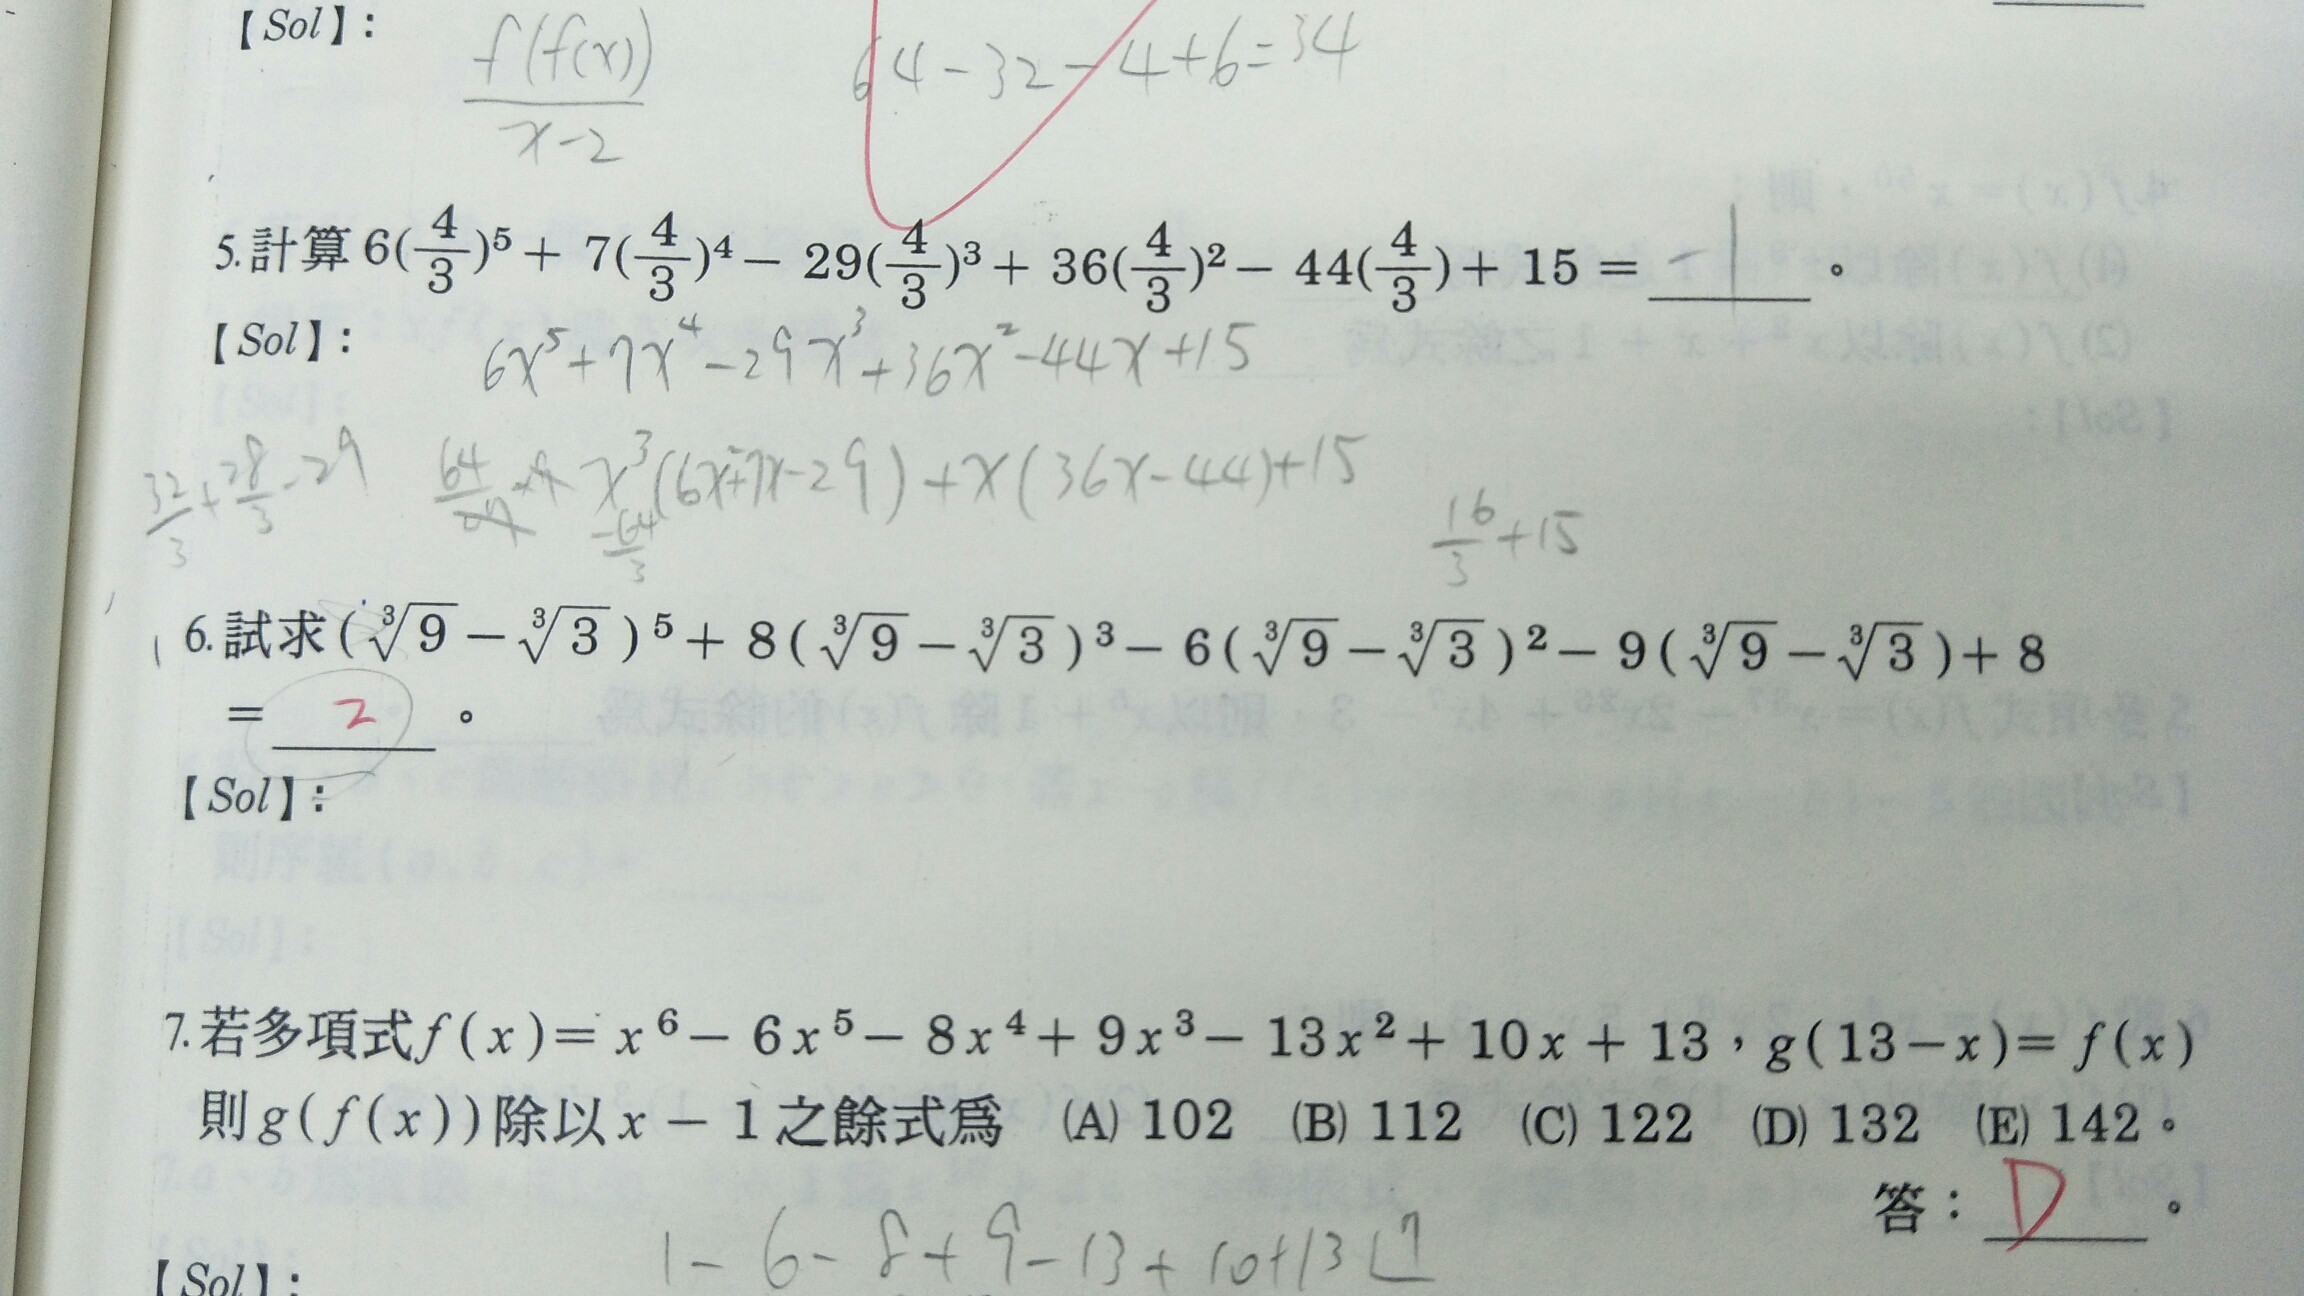 【Sol】:
f(f(x))
x-2
64-32-4+6=34
5.計算 6(4/3)⁵+ 7(4/3)⁴- 29(4/3)³+ 36(4/3)²- 44(4/3)+ 15 = -1。
【Sol】:
6x⁵+7x⁴-29x³+36x²-44x+15
32/3+28/3-29 64 x³(6x²+7x-29)+x(36x-44)+15
-64/3
16/3+15
6.試求(∛9-∛3)⁵+8(∛9-∛3)³-6(∛9-∛3)²-9(∛9-∛3)+8
= 2。
【Sol】:
7.若多項式f(x)= x⁶- 6x⁵- 8x⁴+ 9x³- 13x²+ 10x + 13,g(13-x)= f(x)
則g(f(x))除以x - 1之餘式爲 (A) 102 (B) 112 (C) 122 (D) 132 (E) 142。
答:D。
1-6-8+9-13+10+13
【Sol】: